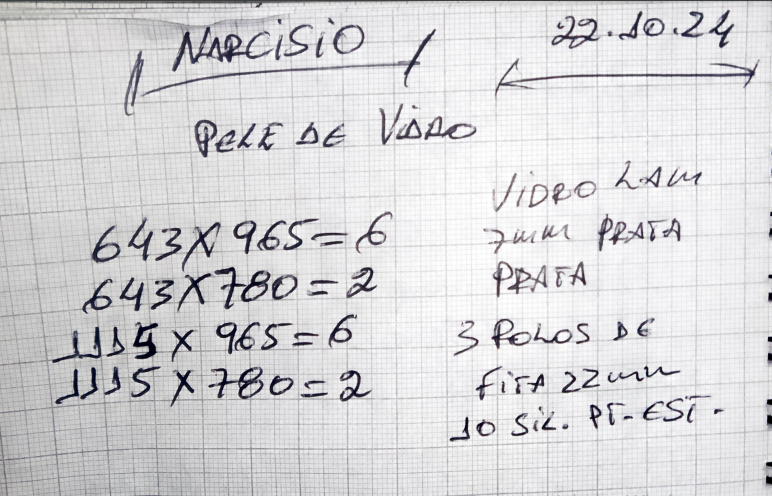 NARCISIO
22.10.24
PELE DE VIDRO
643X965=6
643X780=2
1115X965=6
1115X780=2
VIDRO LAM
7mm PRATA
PRATA
3 ROLOS DE
FITA 22mm
10 SIL. PT-EST-